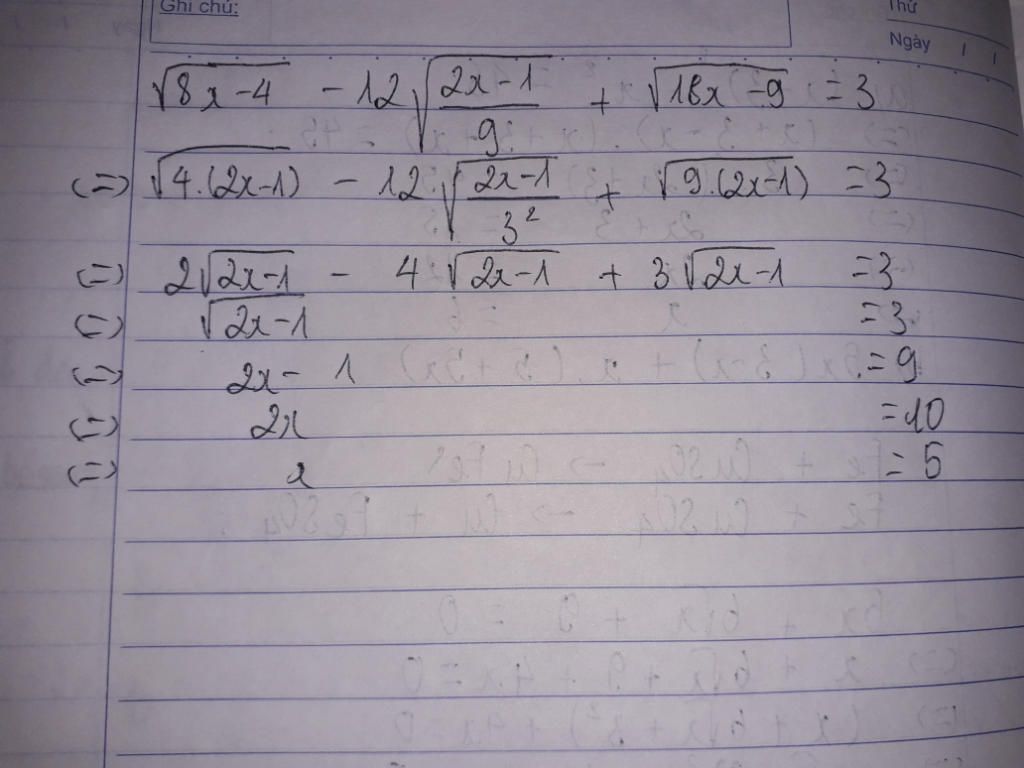 Ghi chú:
Thứ
Ngày / /
√(8x-4) - 12√((2x-1)/9) + √(18x-9) = 3
(=) √(4.(2x-1)) - 12√((2x-1)/3²) + √(9.(2x-1)) = 3
(=) 2√(2x-1) - 4√(2x-1) + 3√(2x-1) = 3
(=) √(2x-1) = 3
(=) 2x - 1 = 9
(=) 2x = 10
(=) x = 5